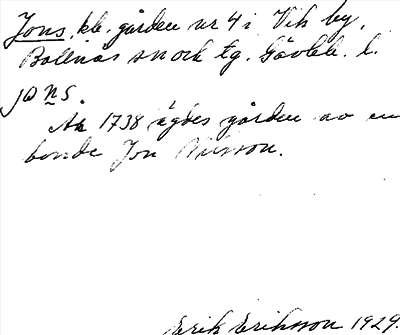 Jons, kb. gården nr 4 i Vik by,
Bollnäs sn och tg. Gävleb. l.
jɷns.
År 1738 ägdes gården av en
bonde Jon Nilsson.
Erik Eriksson 1929.